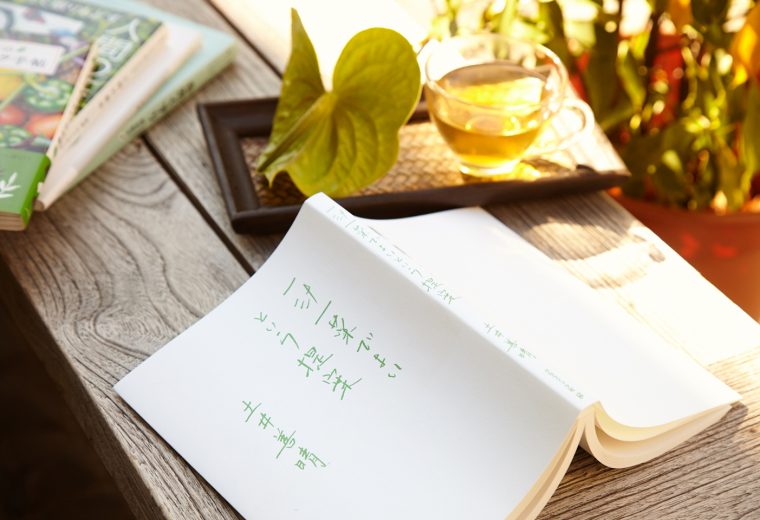 一汁一菜でよい
という提案
土井善晴
一汁一菜でよいという提案 土井善晴